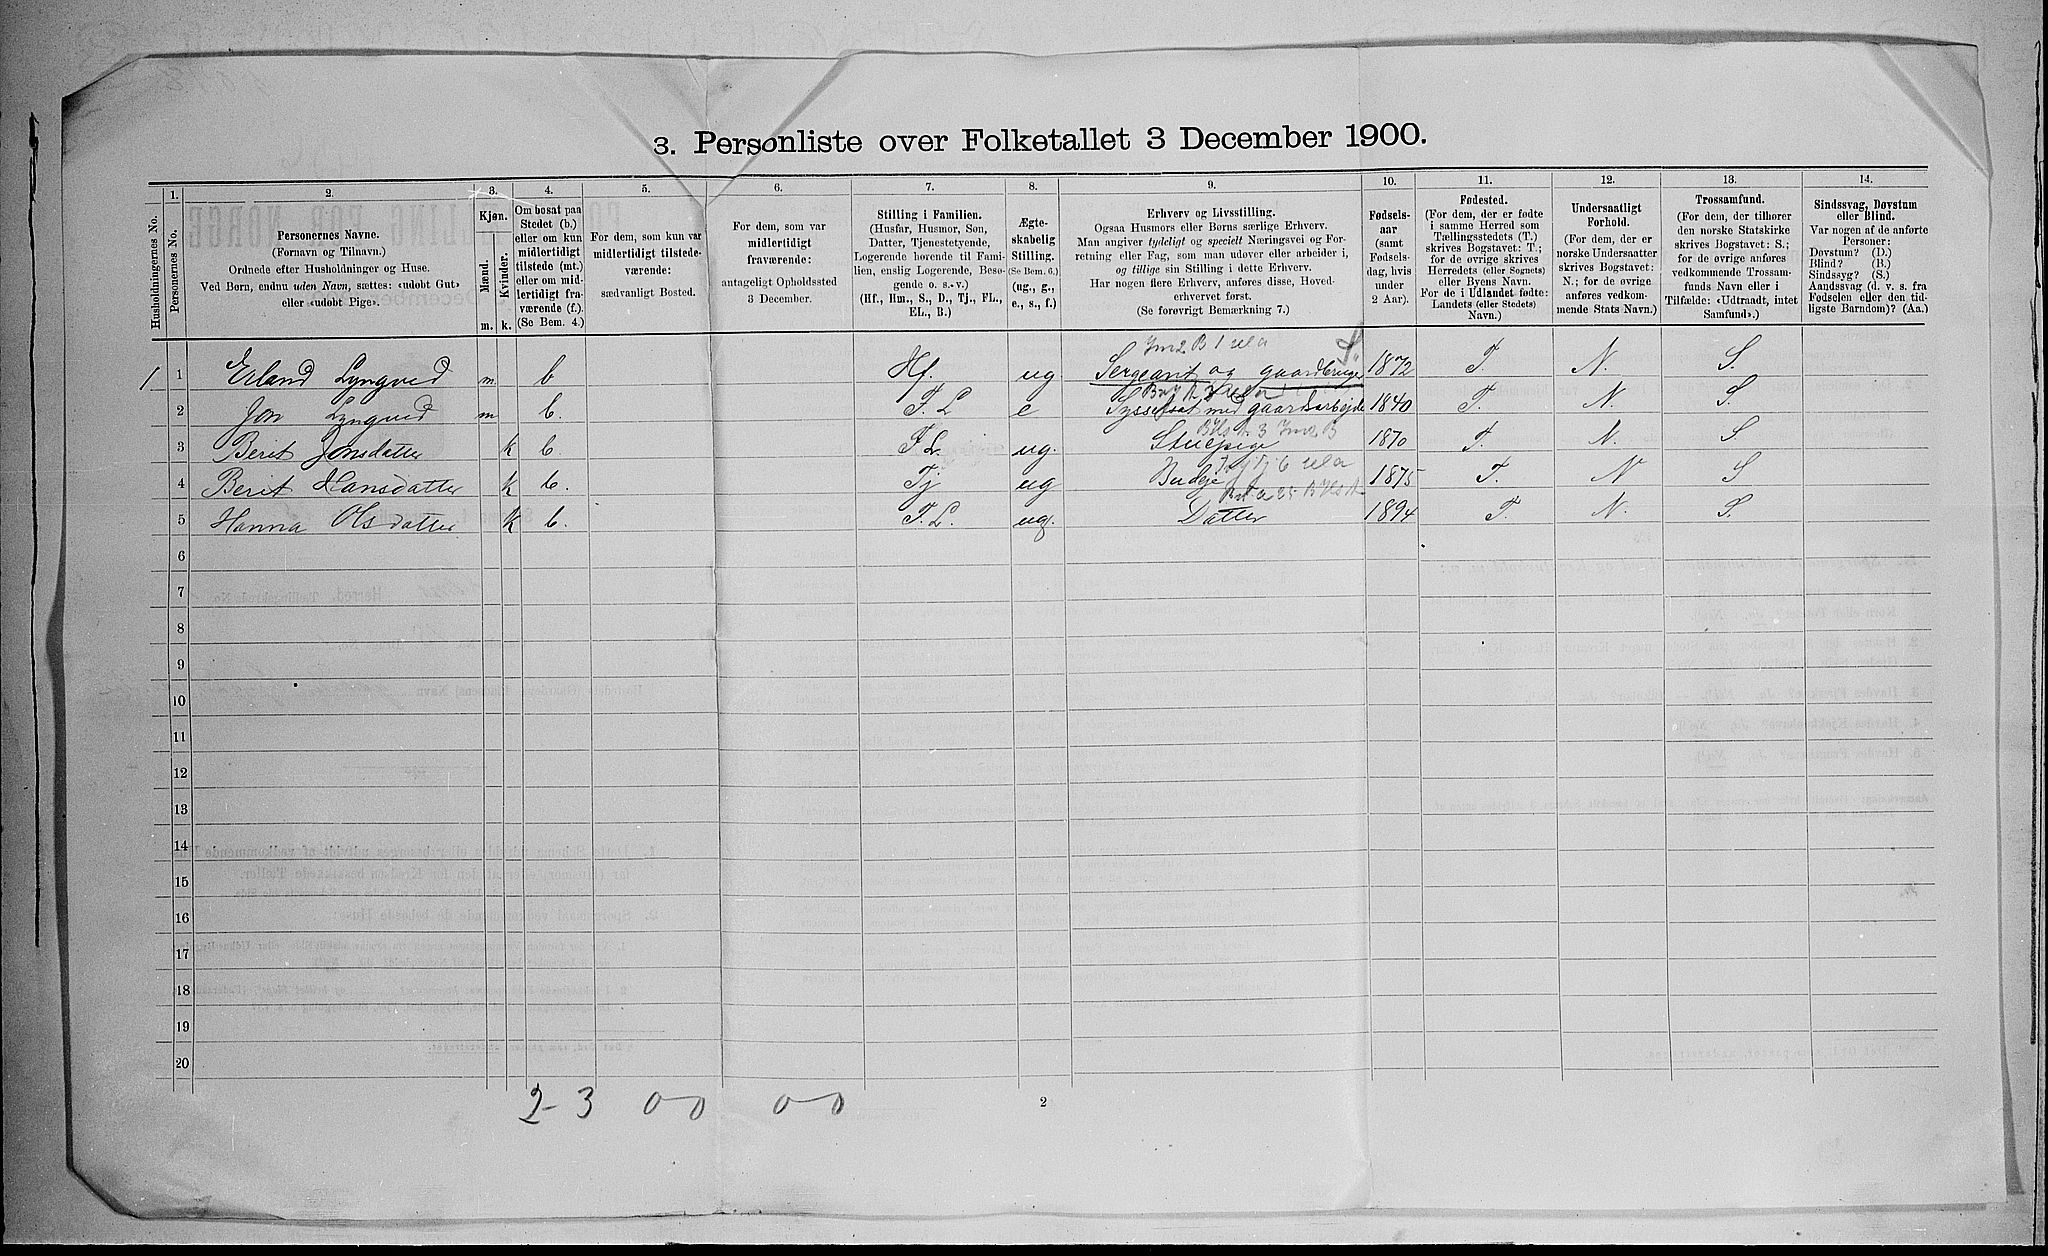 3. Personliste over Folketallet 3 December 1900.
1. 2. 3. 4. 5. 6. 7. 8. 9. 10. 11. 12. 13. 14.
Husholdningernes No.
Personernes No.
Personernes Navne.
(Fornavn og Tilnavn.)
Ordnede efter Husholdninger og Huse.
Ved Børn, endnu uden Navn, sættes: «udøbt Gut»
eller «udøbt Pige».
Kjøn.
Mænd.
Kvinder.
m. k.
Om bosat paa
Stedet (b.)
eller om kun
midlertidigt
tilstede (mt.)
eller om mid-
lertidigt fra-
værende (f.)
(Se Bem. 4.)
For dem, som kun var
midlertidigt tilstede-
værende:
sædvanligt Bosted.
For dem, som var
midlertidigt
fraværende:
antageligt Opholdssted
3 December.
Stilling i Familien.
(Husfar, Husmor, Søn,
Datter, Tjenestetyende,
Logerende hørende til Fami-
lien, enslig Logerende, Besø-
gende o. s. v.)
(Hf., Hm., S., D., Tj., FL.,
EL., B.)
Ægte-
skabelig
Stilling.
(Se Bem. 6.)
(ug., g.,
e., s., f.)
Erhverv og Livsstilling.
Ogsaa Husmors eller Børns særlige Erhverv.
Man angiver tydeligt og specielt Næringsvei og For-
retning eller Fag, som man udøver eller arbeider i,
og tillige sin Stilling i dette Erhverv.
Har nogen flere Erhverv, anføres disse, Hoved-
erhvervet først.
(Se forøvrigt Bemærkning 7.)
Fødsels-
aar
(samt
Fødsels-
dag, hvis
under
2 Aar).
Fødested.
(For dem, der er fødte
i samme Herred som
Tællingsstedets (T.)
skrives Bogstavet: T.;
for de øvrige skrives
Herredets (eller Sognets)
eller Byens Navn.
For de i Udlandet fødte:
Landets (eller Stedets)
Navn.)
Undersaatligt
Forhold.
(For dem, der er
norske Undersaatter
skrives Bogstavet:
N.; for de øvrige
anføres vedkom-
mende Stats Navn.)
Trossamfund.
(For dem, der tilhører
den norske Statskirke
skrives Bogstavet: S.;
for de øvrige anføres
vedkommende Trossam-
funds Navn eller i
Tilfælde: «Udtraadt, intet
Samfund».)
Sindssvag, Døvstum
eller Blind.
Var nogen af de anførte
Personer:
Døvstum? (D.)
Blind? (B.)
Sindssyg? (S.)
Aandssvag (d. v. s. fra
Fødselen eller den tid-
ligste Barndom)? (Aa.)
1 1 Erland Lyngved m b Hf. ug Sergeant og gaardbruger 1872 T. N. S.
2 Jon Lyngved m b. F. L e Sysselsat med gaardsarbejde 1840 T. N. S.
3 Berit Jonsdatter k b. F L. ug. Stuepige 1870 T. N. S
4 Berit Hansdatter k b. Tj ug Budeje 1875 T. N S
5 Hanna Olsdatter k b. F. L. ug. Datter 1894 T. N. S.
6
7
8
9
10
11
12
13
14
15
16
17
18
19
20
2-3 0-0 0-0
2